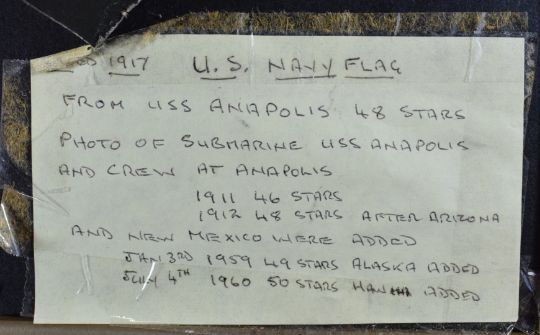 1917 U.S. NAVY FLAG
FROM USS ANAPOLIS 48 STARS
PHOTO OF SUBMARINE USS ANAPOLIS
AND CREW AT ANAPOLIS
1911 46 STARS
1912 48 STARS AFTER ARIZONA
AND NEW MEXICO WERE ADDED
JAN 3RD 1959 49 STARS ALASKA ADDED
JULY 4TH 1960 50 STARS ADDED